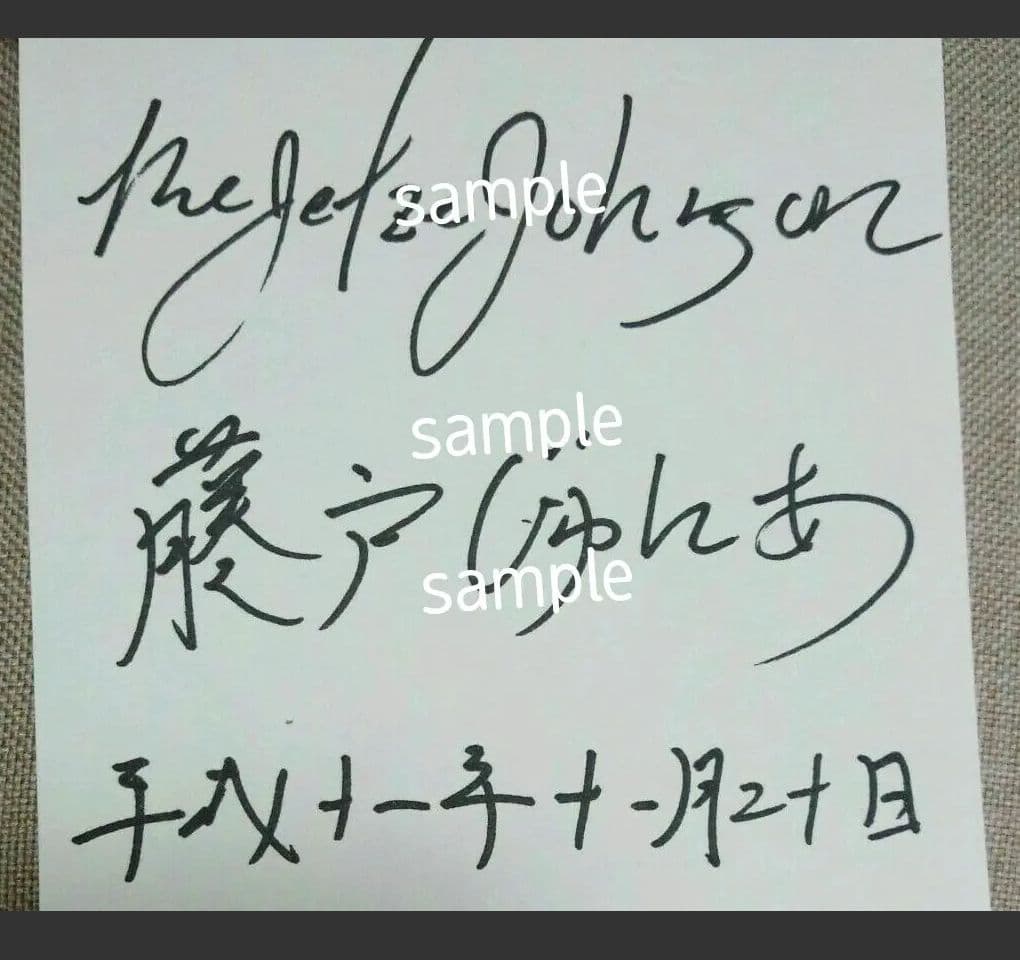 the JetzeJohnson
sample
sample
藤戸じゅにあ
sample
平成十一年十一月二十日